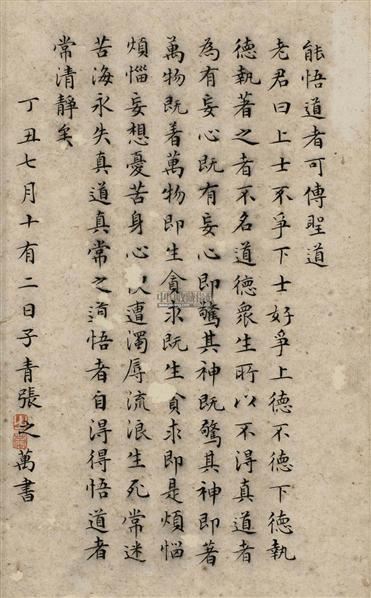 能悟道者可傳聖道
老君曰上士不爭下士好爭上德不德下德執
德執著之者不名道德衆生所以不得真道者
為有妄心既有妄心即驚其神既驚其神即著
萬物既着萬物即生貪求既生貪求即是煩惱
煩惱妄想憂苦身心以遭濁辱流浪生死常迷
苦海永失真道真常之道悟者自淂得悟道者
常清靜矣
丁丑七月十有二日子青張之萬書